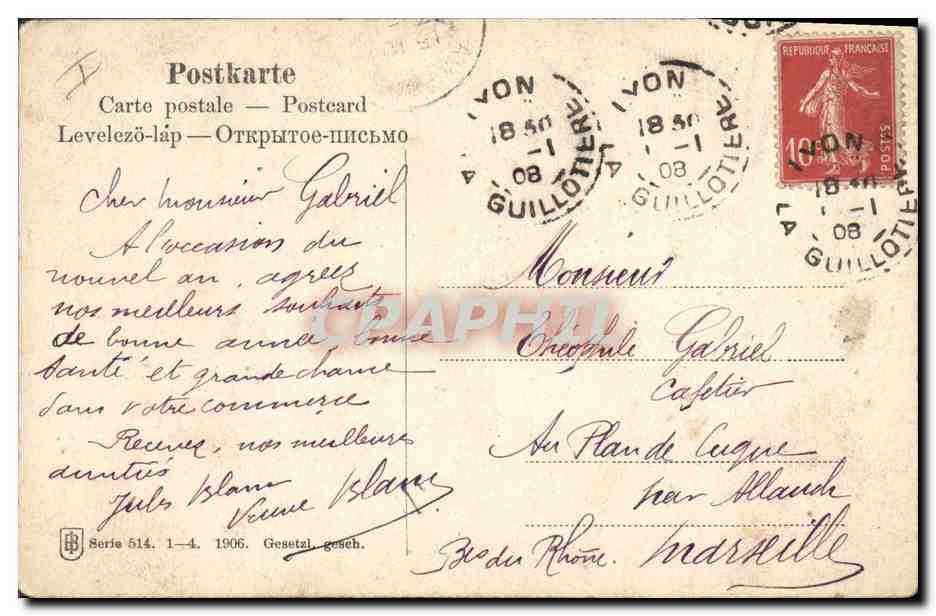 Postkarte
Carte postale — Postcard
Levelezö-láp — Открытое-письмо
Cher Monsieur Gabriel
A l'occasion du
nouvel an, agréez
nos meilleurs souhaits
de bonne année bonne
Santé et grande chance
dans votre commerce
Recevez, nos meilleures
amitiés
Jules Blanc
Veuve Blanc
BD
Serie 514. 1—4. 1906. Gesetzl. gesch.
LYON
18 30
1 -1
08
LA GUILLOTIERE
LYON
18 30
1 -1
08
LA GUILLOTIERE
REPUBLIQUE FRANÇAISE
10
POSTES
LYON
18 30
1 -1
08
LA GUILLOTIERE
Monsieur
Théophile Gabriel
Cafetier
Au Plan de Cuque
par Allauch
Marseille
Bes du Rhône.
CPAPHIL